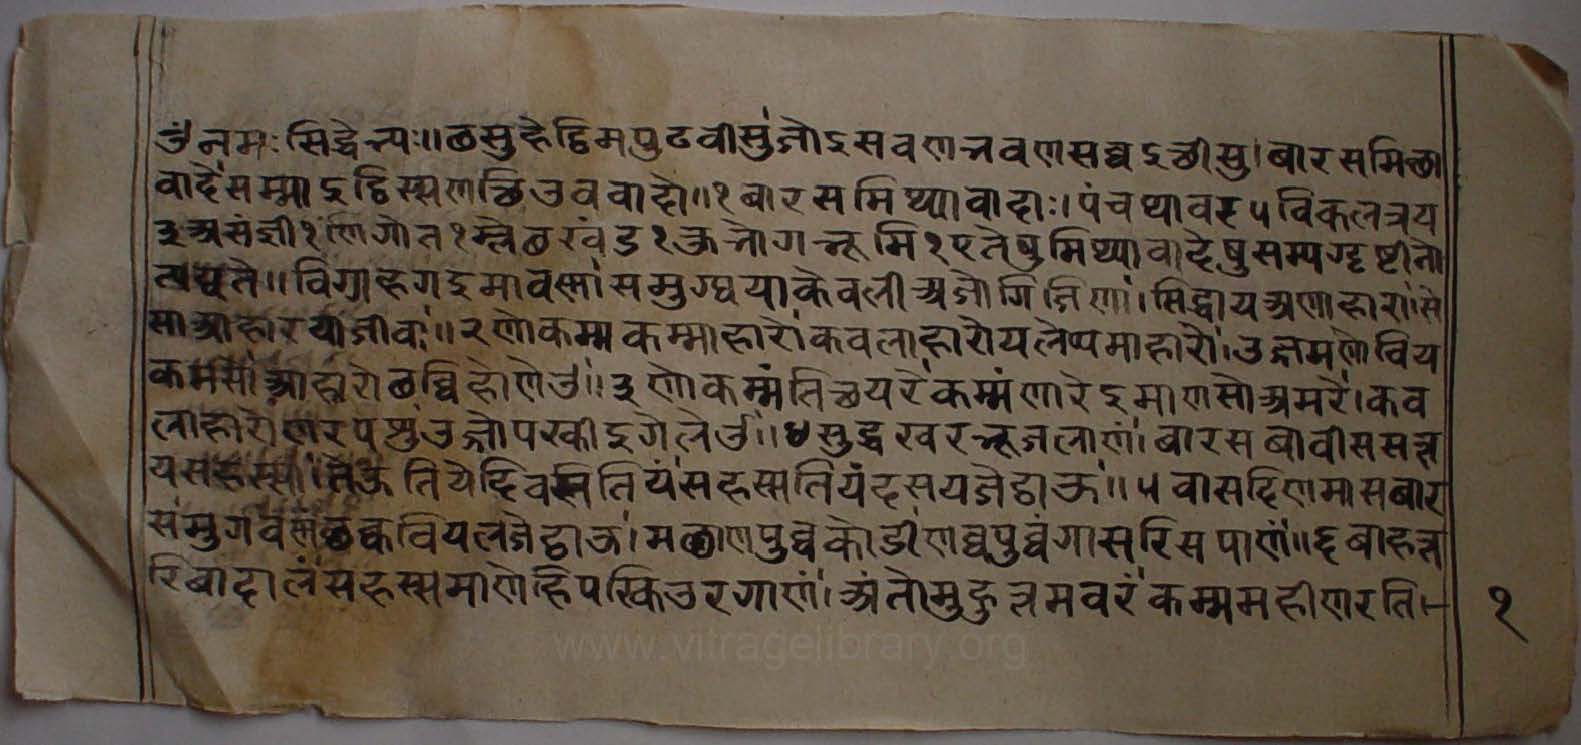 ॐ नमः सिद्धेभ्यः॥ छसु हेट्ठिमपुढवीसु जोइसवणभवणसव्वइत्थीसु। बारसमिच्छा
वादे सम्माइट्ठिस्स णत्थि उववादो॥१ बारस मिथ्यावादाः। पंच थावर ५ विकलत्रय
३ असंज्ञी १ णिगोत १ म्लेछखंड १ कुभोगभूमि १ एतेषु मिथ्यावादेषु सम्यग्दृष्टी नो
त्पद्यते॥ विग्गहगइमावण्णा समुग्घया केवली अजोगिजिणा। सिद्धा य अणाहारा से
सा आहारया जीवा॥२ णोकम्म कम्माहारो कवलाहारो य लेप्पमाहारो। उज्जमणो विय
कमसो आहारो छव्विहो णेउ॥३ णोकम्मं तिच्छयरे कम्मं णारेइ माणसो अमरे। कव
लाहारो णरपशु उज्जो पस्कीइगे लेउ॥४ सुद्धखरभूजलाणं। बारस बावीस सत्त
य सहस्सा। तेऊतिये दिवसतियं सहस्सतियं दस य जेट्ठाऊ॥५ वासदिणमास बार
समुगवण्णं छक्क वियलजेट्ठाऊ। मछाण पुव्वकोडी णव पुव्वंगा सरिसपाणं॥६ बाहत्त
रि बादालं सहस्समाणेहि पस्किउरगाणं। अंतोमुहुत्तमवरं कम्ममहीणरति।-
१
www.vitragelibrary.org